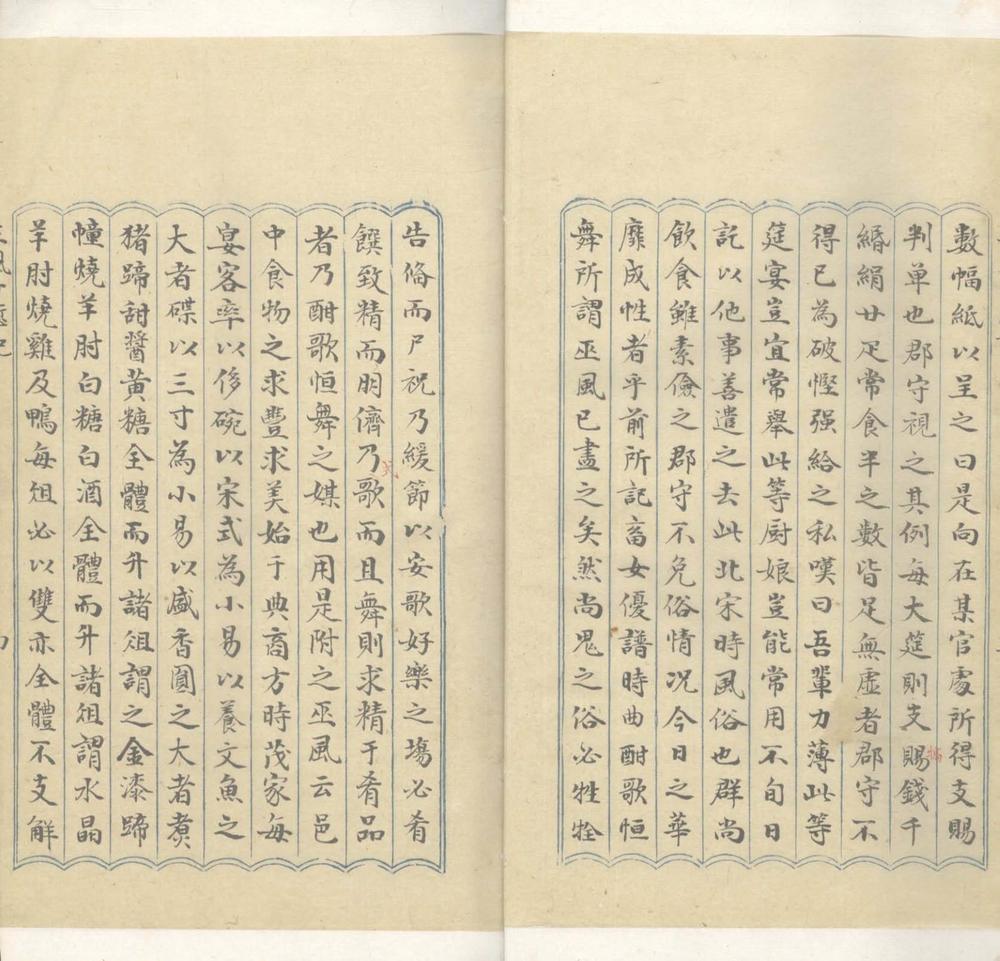 數幅紙以呈之曰是向在某官處所得支賜
判单也郡守視之其例每大筵則支賜錢千
緡絹廿疋常食半之數皆足無虛者郡守不
得已為破慳强給之私嘆曰吾輩力薄此等
筵宴豈宜常舉此等厨娘豈能常用不旬日
託以他事善遣之去此北宋時風俗也群尚
飲食雖素儉之郡守不免俗情况今日之華
靡成性者乎前所記畜女優譜時曲酣歌恒
舞所謂巫風已盡之矣然尚鬼之俗必牲牷
告偹而尸祝乃緩節以安歌好樂之塲必肴
饌致精而朋儕乃歌而且舞則求精于肴品
者乃酣歌恒舞之媒也用是附之巫風云邑
中食物之求豐求美始于典商方時茂家每
宴客率以侈碗以宋式為小易以養文魚之
大者碟以三寸為小易以盛香圓之大者煑
猪蹄甜醬黄糖全體而升諸俎謂之金漆蹄
幢燒羊肘白糖白酒全體而升諸俎謂水晶
羊肘燒雞及鴨每俎必以雙亦全體不支解